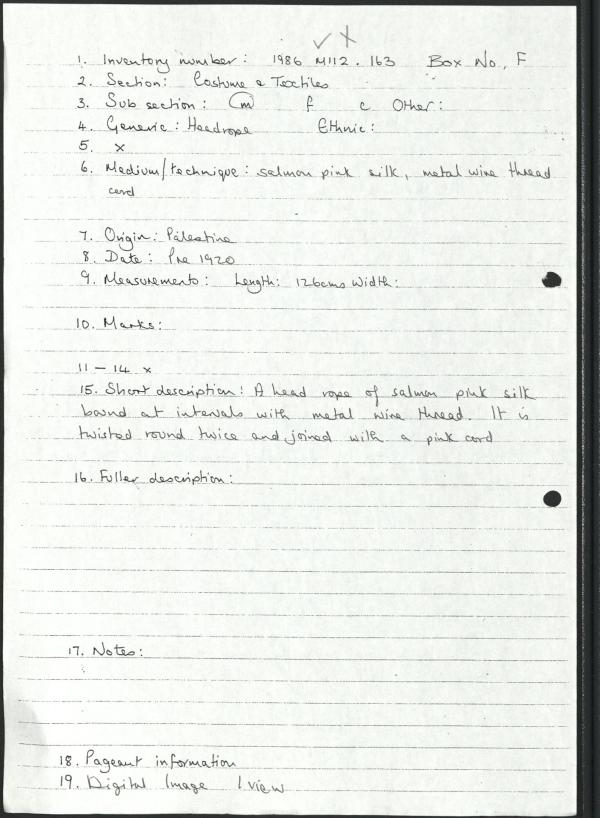 ✓ X
1. Inventory number: 1986 M112.163 Box No. F
2. Section: Costume & Textiles
3. Sub section: m f c Other:
4. Generic: Headrope Ethnic:
5. x
6. Medium/technique: salmon pink silk, metal wire thread
cord
7. Origin: Palestine
8. Date: Pre 1920
9. Measurements: Length: 126cms Width:
10. Marks:
11 – 14 x
15. Short description: A head rope of salmon pink silk
bound at intervals with metal wire thread. It is
twisted round twice and joined with a pink cord
16. Fuller description:
17. Notes:
18. Pageant information
19. Digital Image 1 view